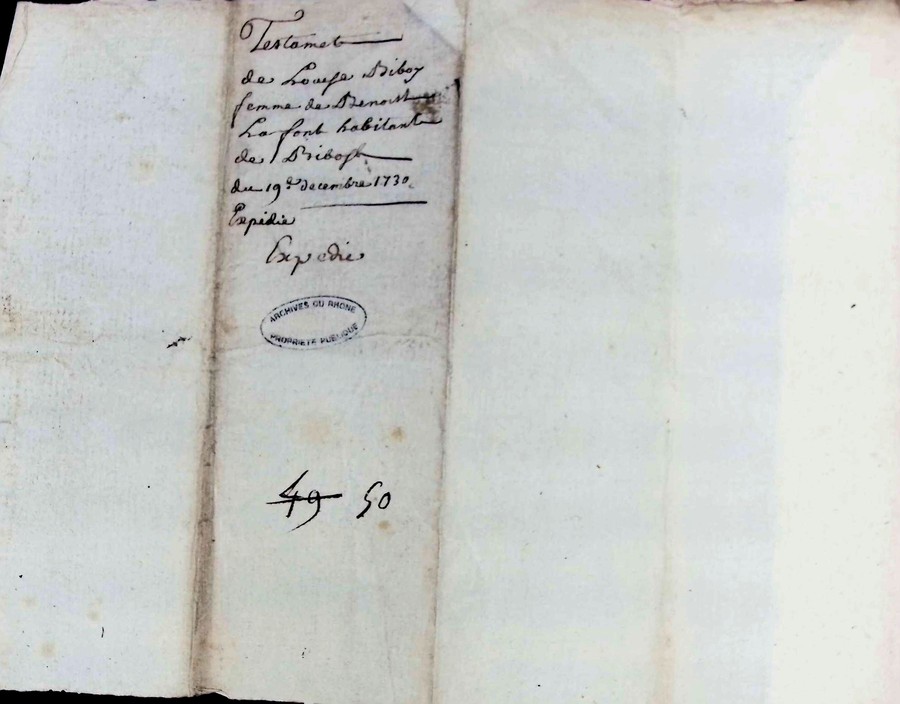 Testamet
de Louise Riboy
femme de Benoist
La font habitante
de Ribost
du 19e decembre 1730
Expédie
Expedie
ARCHIVES DU RHONE
PROPRIETE PUBLIQUE
49 50